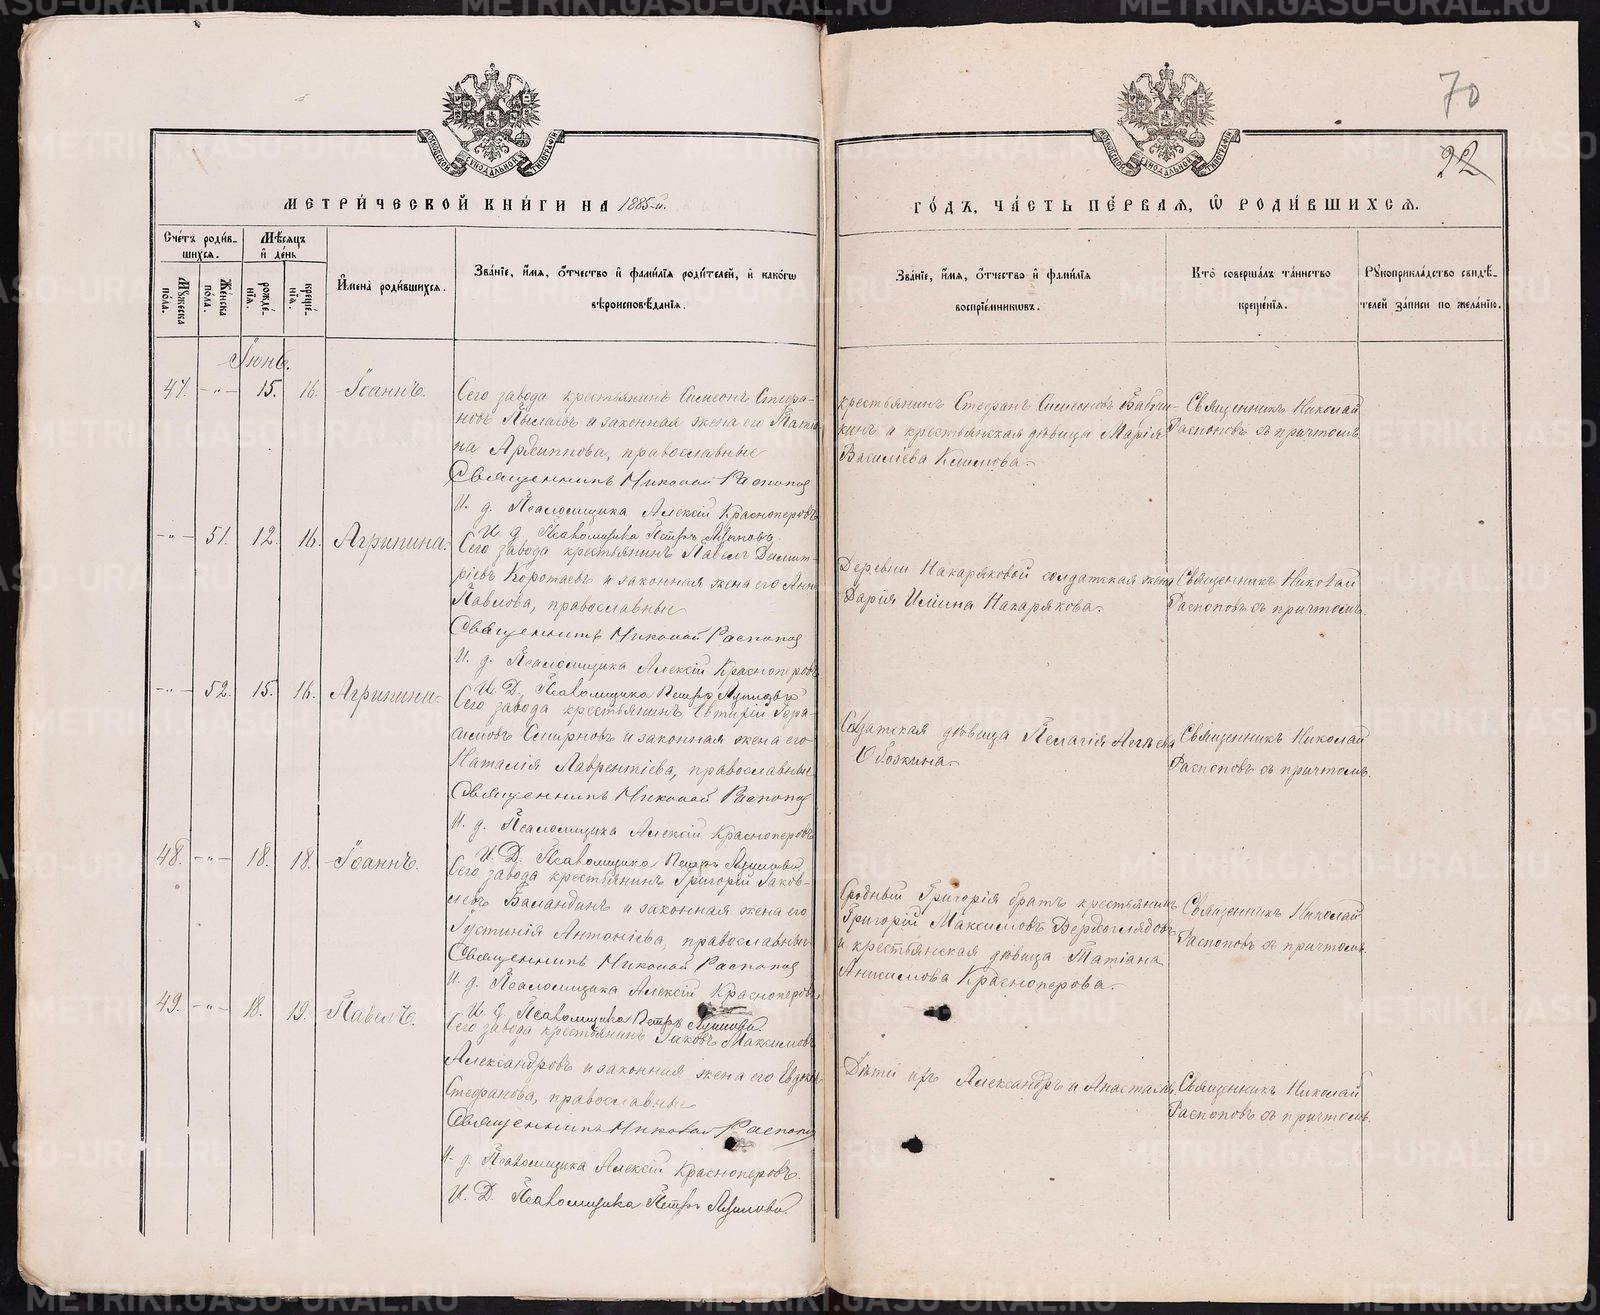 70
92
МЕТРИ́ЧЕСКОЙ КНИ́ГИ НА 1885-й.
ГО́ДЪ, ЧА́СТЬ ПЕ́РВАѦ, Ѡ҆ РОДИ́ВШИХСѦ.
Сче́тъ роди́в-
шихсѧ.
Мꙋжеска по́ла.
Же́нска по́ла.
Мѣ́сѧцъ
и҆ де́нь
рожде́-
нїѧ.
креще́-
нїѧ.
И҆мена̀ роди́вшихсѧ.
Зва́нїе, и҆́мѧ, ѻ҆́тчество и҆ фами́лїѧ роди́телей, и҆ како́гѡ
вѣроисповѣ́данїѧ.
Зва́нїе, и҆́мѧ, ѻ҆́тчество и҆ фами́лїѧ
воспрїе́мникѡвъ.
Кто̀ соверша́лъ та́инство
креще́нїѧ.
Рꙋкоприкла́дство свидѣ́-
телей за́писи по жела́нїю.
Іюнь.
47. -"- 15. 16. Іоаннъ.
Сего завода крестьянинъ Симеонъ Стефа-
новъ и законная жена его Татіа-
на Архиппова, православные
Священникъ Николай Распопов
И. д. Псаломщика Алексій Красноперовъ
И. д. Псаломщика Петръ
крестьянинъ Стефанъ Симеоновъ Бабуш-
кинъ и крестьянская дѣвица Марія
Василіева Климова.
Священникъ Николай
Распоповъ съ причтомъ.
-"- 51. 12. 16. Агрипина.
Сего завода крестьянинъ Павелъ Димит-
ріевъ Коротаевъ и законная жена его Анна
Павлова, православные
Священникъ Николай Распопов
И. д. Псаломщика Алексій Красноперовъ
И. Д. Псаломщика Петръ
Деревни Накаряковой солдатская жена
Дарія Иліина Накарякова.
Священникъ Николай
Распоповъ съ причтомъ.
-"- 52. 15. 16. Агрипина.
Сего завода крестьянинъ Евтихій Гера-
симовъ Смирновъ и законная жена его
Наталія Лаврентіева, православные
Священникъ Николай Распопов
И. д. Псаломщика Алексій Красноперовъ
И. Д. Псаломщика Петръ
Солдатская дѣвица Пелагія
Обожина.
Священникъ Николай
Распоповъ съ причтомъ.
48. -"- 18. 18. Іоаннъ.
Сего завода крестьянинъ Григорій Іаков-
левъ Баландинъ и законная жена его
Іустинія Антоніева, православные
Священникъ Николай Распопов
И. д. Псаломщика Алексій Красноперовъ
И. Д. Псаломщика Петръ
Сродный Григорія братъ крестьянинъ
Григорій Максимовъ Верхоглядовъ
и крестьянская дѣвица Татіана
Анисимова Красноперова.
Священникъ Николай
Распоповъ съ причтомъ.
49. -"- 18. 19. Павелъ.
Сего завода крестьянинъ Іаковъ Максимовъ
Александровъ и законная жена его Евдокія
Стефанова, православные
Священникъ Николай Распопов
И. д. Псаломщика Алексій Красноперовъ.
И. Д. Псаломщика Петръ
Дѣти ихъ Александръ и Анастасія
Священникъ Николай
Распоповъ съ причтомъ.
METRIKI.GASO-URAL.RU